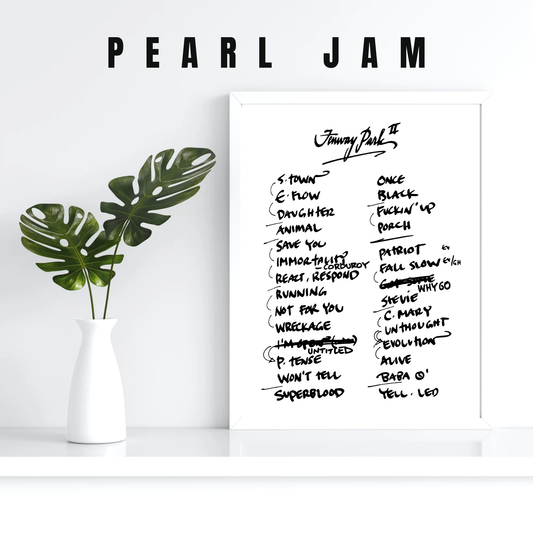 PEARL JAM
Fenway Park II
S. TOWN
E. FLOW
DAUGHTER
ANIMAL
SAVE YOU
IMMORTALITY
CORDUROY
REACT, RESPOND
RUNNING
NOT FOR YOU
WRECKAGE
UNTITLED
P. TENSE
WON'T TELL
SUPERBLOOD
ONCE
BLACK
FUCKIN' UP
PORCH
PATRIOT EV
FALL SLOW EV/GH
WHY GO
STEVIE
C. MARY
UNTHOUGHT
EVOLUTION
ALIVE
BABA O'
YELL. LED